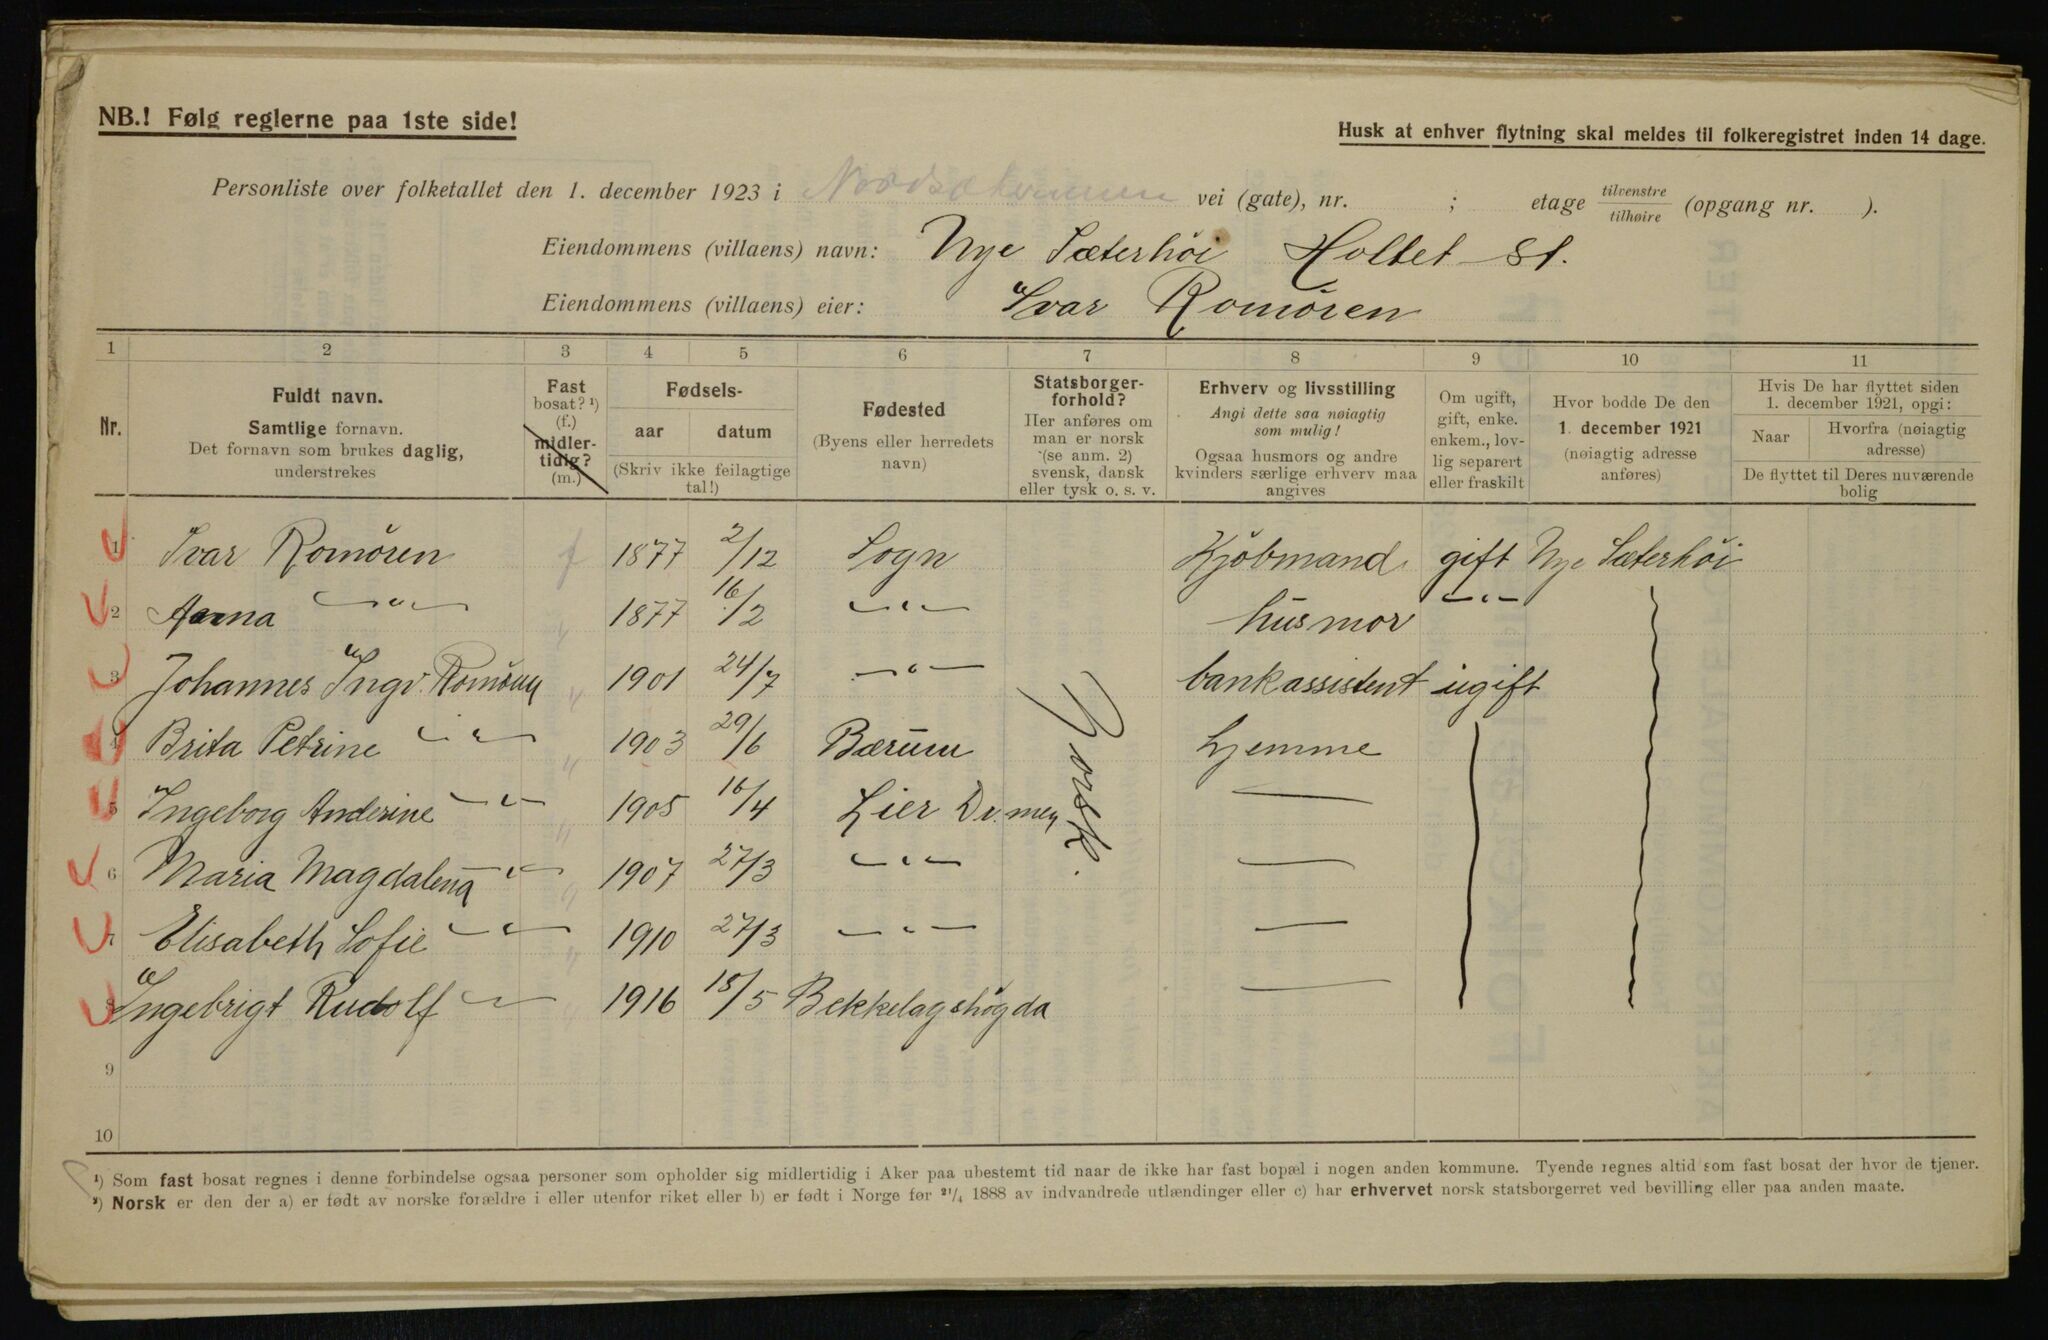 NB.! Følg reglerne paa 1ste side!
Husk at enhver flytning skal meldes til folkeregistret inden 14 dage.
Personliste over folketallet den 1. december 1923 i vei (gate), nr. ; etage tilvenstre / tilhøire (opgang nr. ).
Eiendommens (villaens) navn: Nye Sæterhöi Holtet St.
Eiendommens (villaens) eier: Ivar Romören
1 2 3 4 5 6 7 8 9 10 11
Nr.
Fuldt navn.
Samtlige fornavn.
Det fornavn som brukes daglig,
understrekes
Fast
bosat? ¹)
(f.)
midler-
tidig?
(m.)
Fødsels-
aar datum
(Skriv ikke feilagtige
tal!)
Fødested
(Byens eller herredets
navn)
Statsborger-
forhold?
Her anføres om
man er norsk
(se anm. 2)
svensk, dansk
eller tysk o. s. v.
Erhverv og livsstilling
Angi dette saa nøiagtig
som mulig!
Ogsaa husmors og andre
kvinders særlige erhverv maa
angives
Om ugift,
gift, enke.
enkem., lov-
lig separert
eller fraskilt
Hvor bodde De den
1. december 1921
(nøiagtig adresse
anføres)
Hvis De har flyttet siden
1. december 1921, opgi:
Naar
Hvorfra (nøiagtig
adresse)
De flyttet til Deres nuværende
bolig
1 Ivar Romören f 1877 2/12 Sogn Kjöbmand gift Nye Sæterhöi
2 Anna —"— " 1877 16/2 —"— husmor —"—
3 Johannes Ingv. Romören " 1901 24/7 —"— bankassistent ugift
4 Brita Petrine —"— " 1903 29/6 Bærum hjemme
5 Ingeborg Anderine —"— " 1905 16/4 Lier Dr.men —
6 Maria Magdalena —"— " 1907 27/3 —"— —
7 Elisabeth Sofie —"— " 1910 27/3 —"— —
8 Ingebrigt Rudolf —"— " 1916 18/5 Bekkelagshögda —
Norsk.
9
10
¹) Som fast bosat regnes i denne forbindelse ogsaa personer som opholder sig midlertidig i Aker paa ubestemt tid naar de ikke har fast bopæl i nogen anden kommune. Tyende regnes altid som fast bosat der hvor de tjener.
²) Norsk er den der a) er født av norske forældre i eller utenfor riket eller b) er født i Norge før ²¹/₄ 1888 av indvandrede utlændinger eller c) har erhvervet norsk statsborgerret ved bevilling eller paa anden maate.